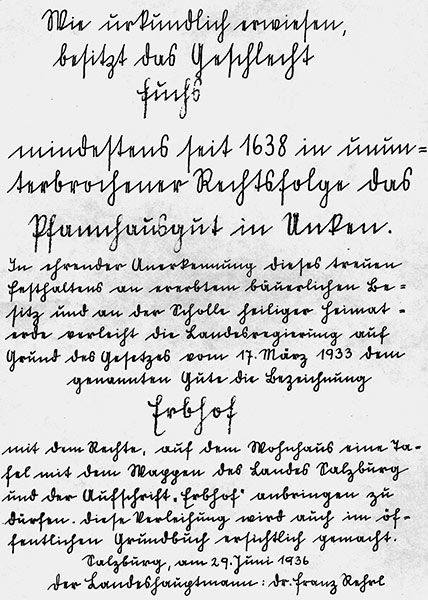 Wie urkundlich erwiesen,
besitzt das Geschlecht
Fuchs
mindestens seit 1638 in unun=
terbrochener Rechtsfolge das
Pfannhausgut in Unken.
In ehrender Anerkennung dieses treuen
Festhaltens an ererbtem bäuerlichen Be-
sitz und an der Scholle heiliger Heimat-
erde verleiht die Landesregierung auf
Grund des Gesetzes vom 17. März 1933 dem
genannten Gute die Bezeichnung
Erbhof
mit dem Rechte, auf dem Wohnhaus eine Ta-
fel mit dem Wappen des Landes Salzburg
und der Aufschrift „Erbhof" anbringen zu
dürfen. Diese Verleihung wird auch im öf-
fentlichen Grundbuch ersichtlich gemacht.
Salzburg, am 29. Juni 1936
Der Landeshauptmann: Dr. Franz Rehrl